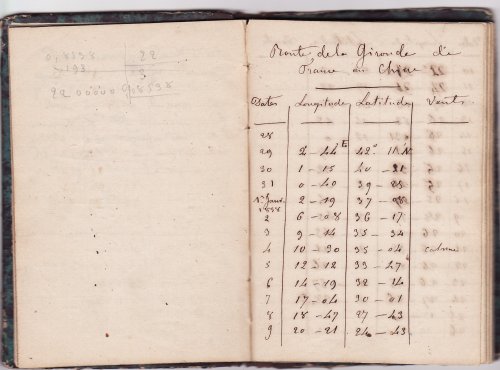 0,8538 | 22
193,
22 00000 0,8538
Route de la Gironde de
France en Chine
Dates Longitude Latitude Vents
28
29 2-44 E 42° 11 N
30 1-15 40-21
31 0-40 39-28
1er Janv. 1858 2-19 37-08
2 6-08 36-17
3 9-14 35-34
4 10-30 35-04 calme
5 12-12 33-47
6 14-19 32-14
7 17-04 30-01
8 18-47 27-43
9 20-21 24-43